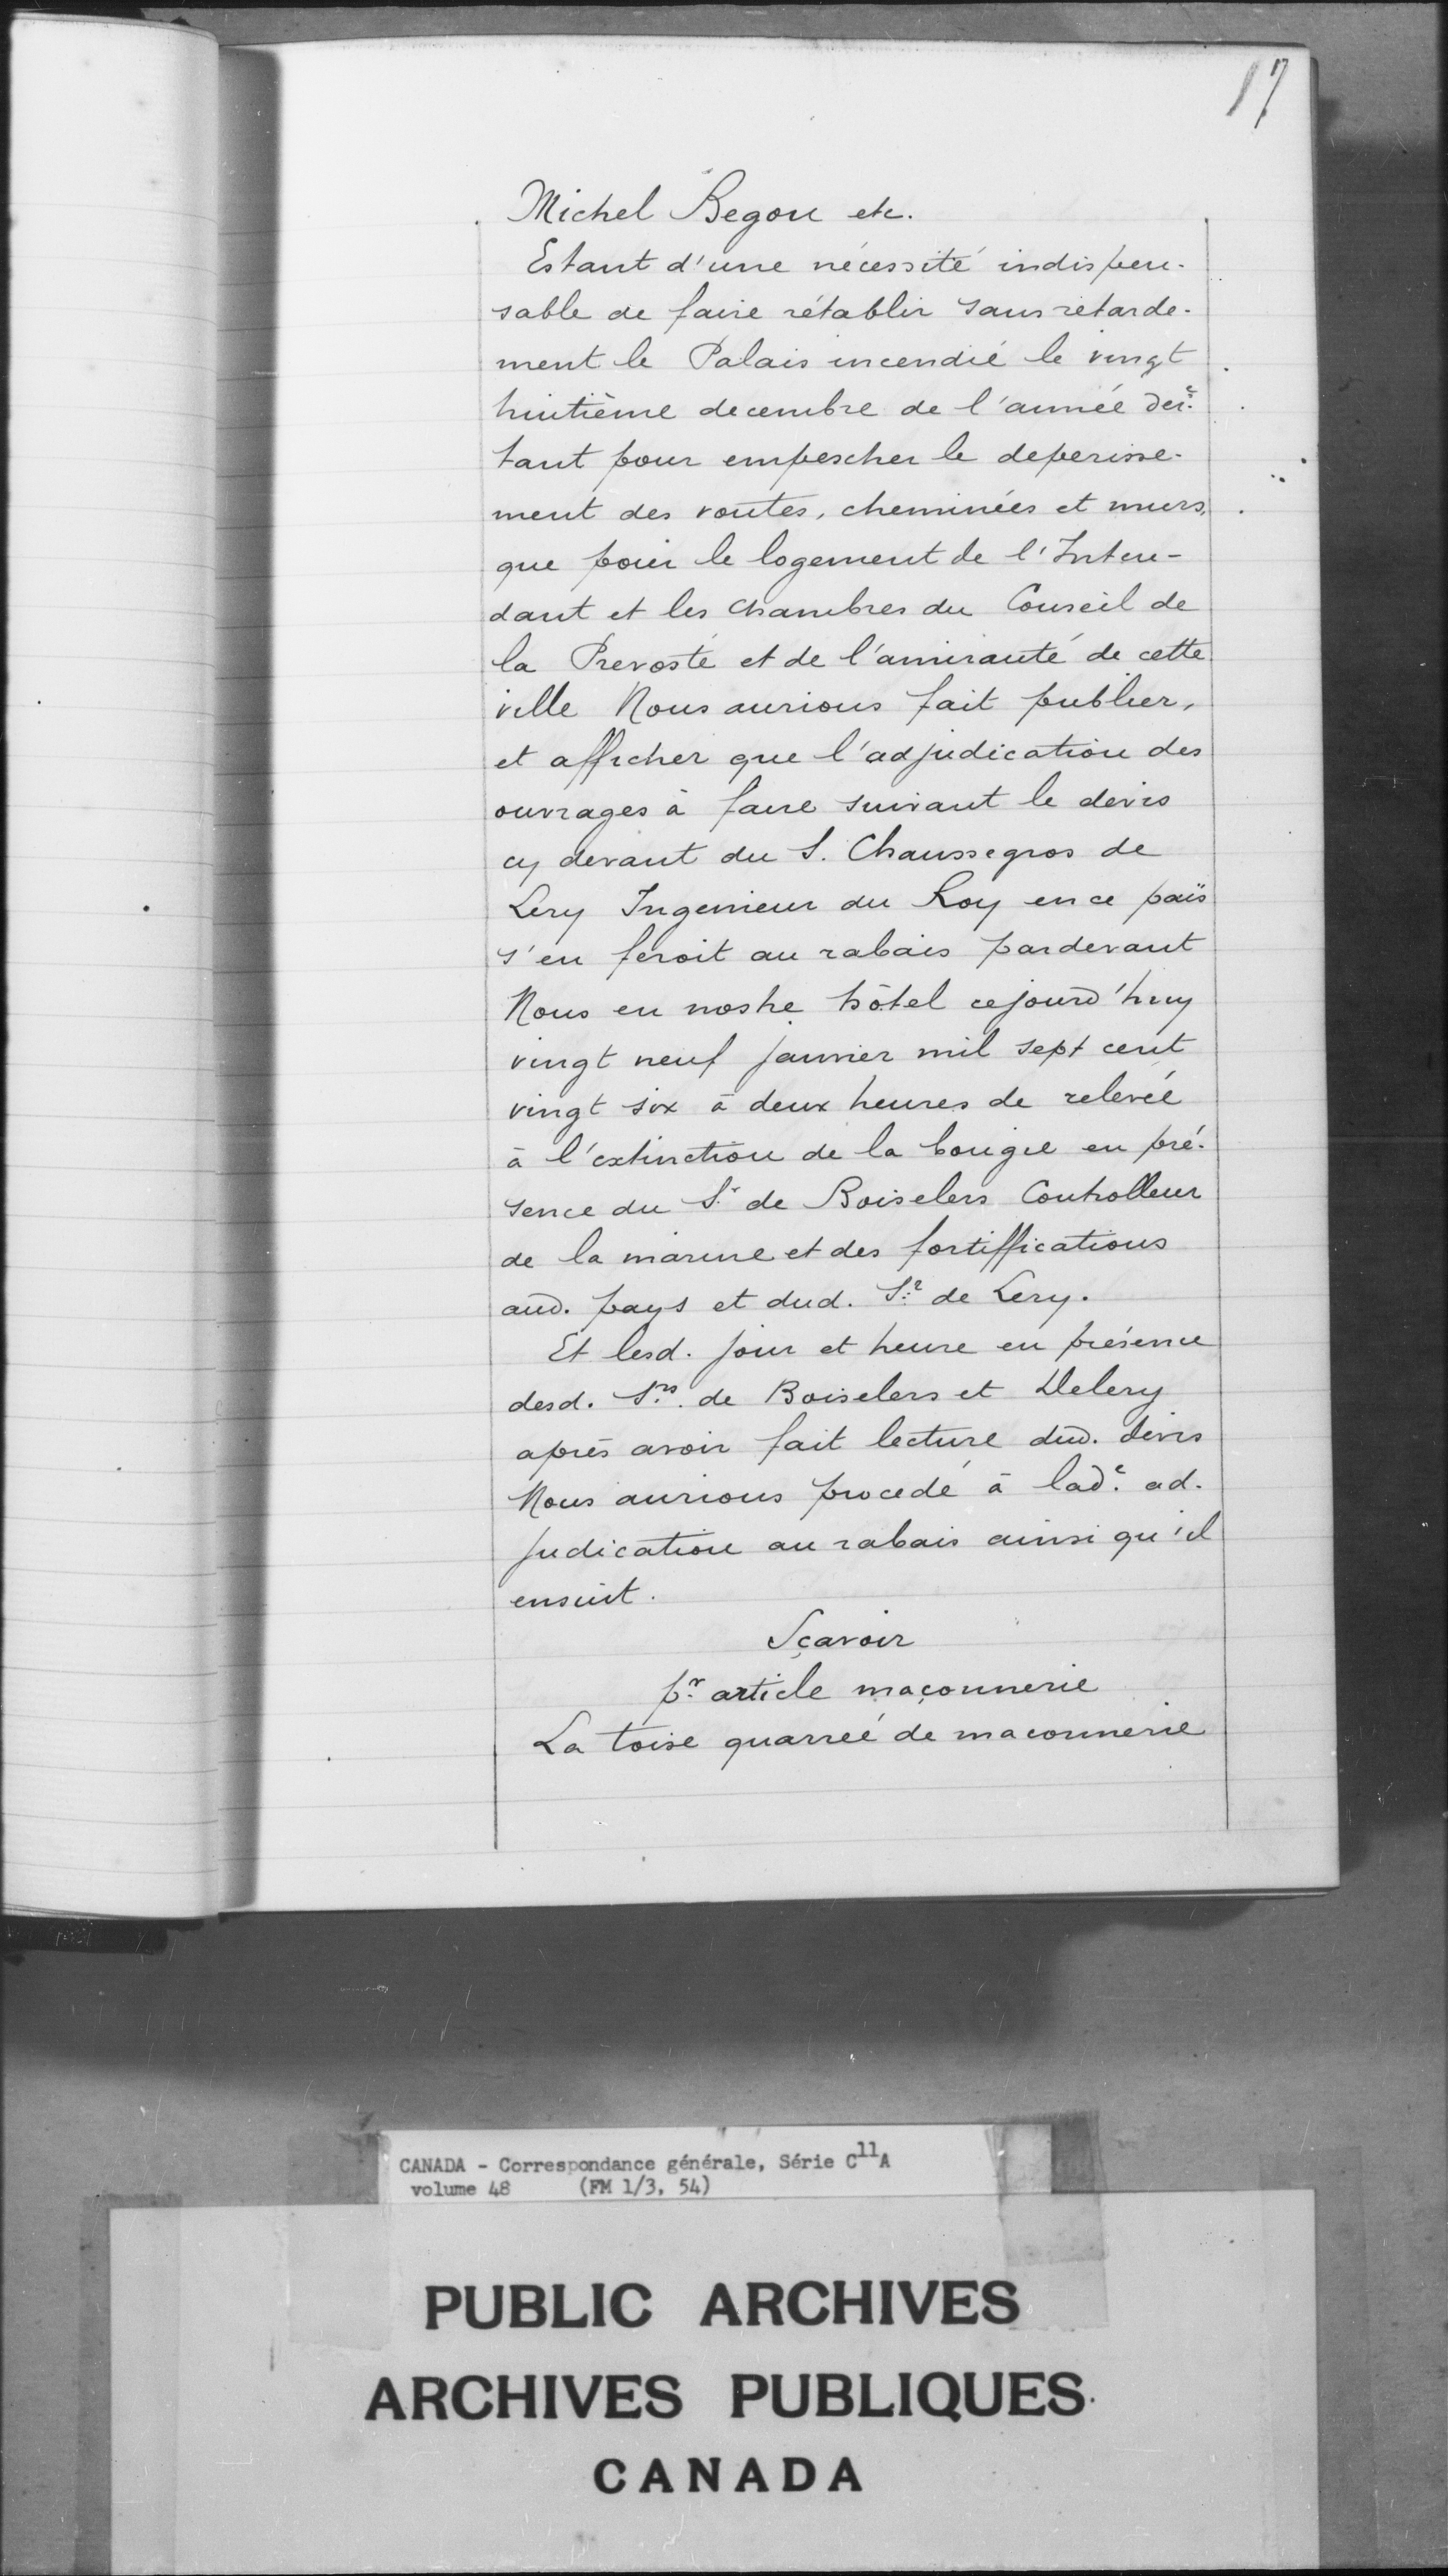 17
Michel Begon etc.
Estant d'une nécessité indispen-
sable de faire rétablir sans retarde-
ment le Palais incendié le vingt
huitième decembre de l'année der.e
tant pour empescher le deperisse-
ment des voutes, cheminées et murs,
que pour le logement de l'Inten-
dant et les chambres du Conseil de
la Prevosté et de l'amirauté de cette
ville Nous aurions fait publier,
et afficher que l'adjudication des
ouvrages à faire suivant le devis
cy devant du S. Chaussegros de
Lery Ingenieur du Roy en ce païs
s'en feroit au rabais pardevant
Nous en nostre hôtel cejourd'huy
vingt neuf janvier mil sept cent
vingt six à deux heures de relevée
à l'extinction de la bougie en pré-
sence du S.r de Boisclers Controlleur
de la marine et des fortiffications
aud. pays et dud. S.r de Lery.
Et lesd. jour et heure en présence
desd. S.rs de Boisclers et Delery
après avoir fait lecture dud. devis
Nous aurions procedé à lad.e ad-
judication au rabais ainsi qu'il
ensuit.
Sçavoir
p.r article maçonnerie
La toise quarrée de maconnerie
CANADA - Correspondance générale, Série C11A
volume 48 (FM 1/3, 54)
PUBLIC ARCHIVES
ARCHIVES PUBLIQUES
CANADA